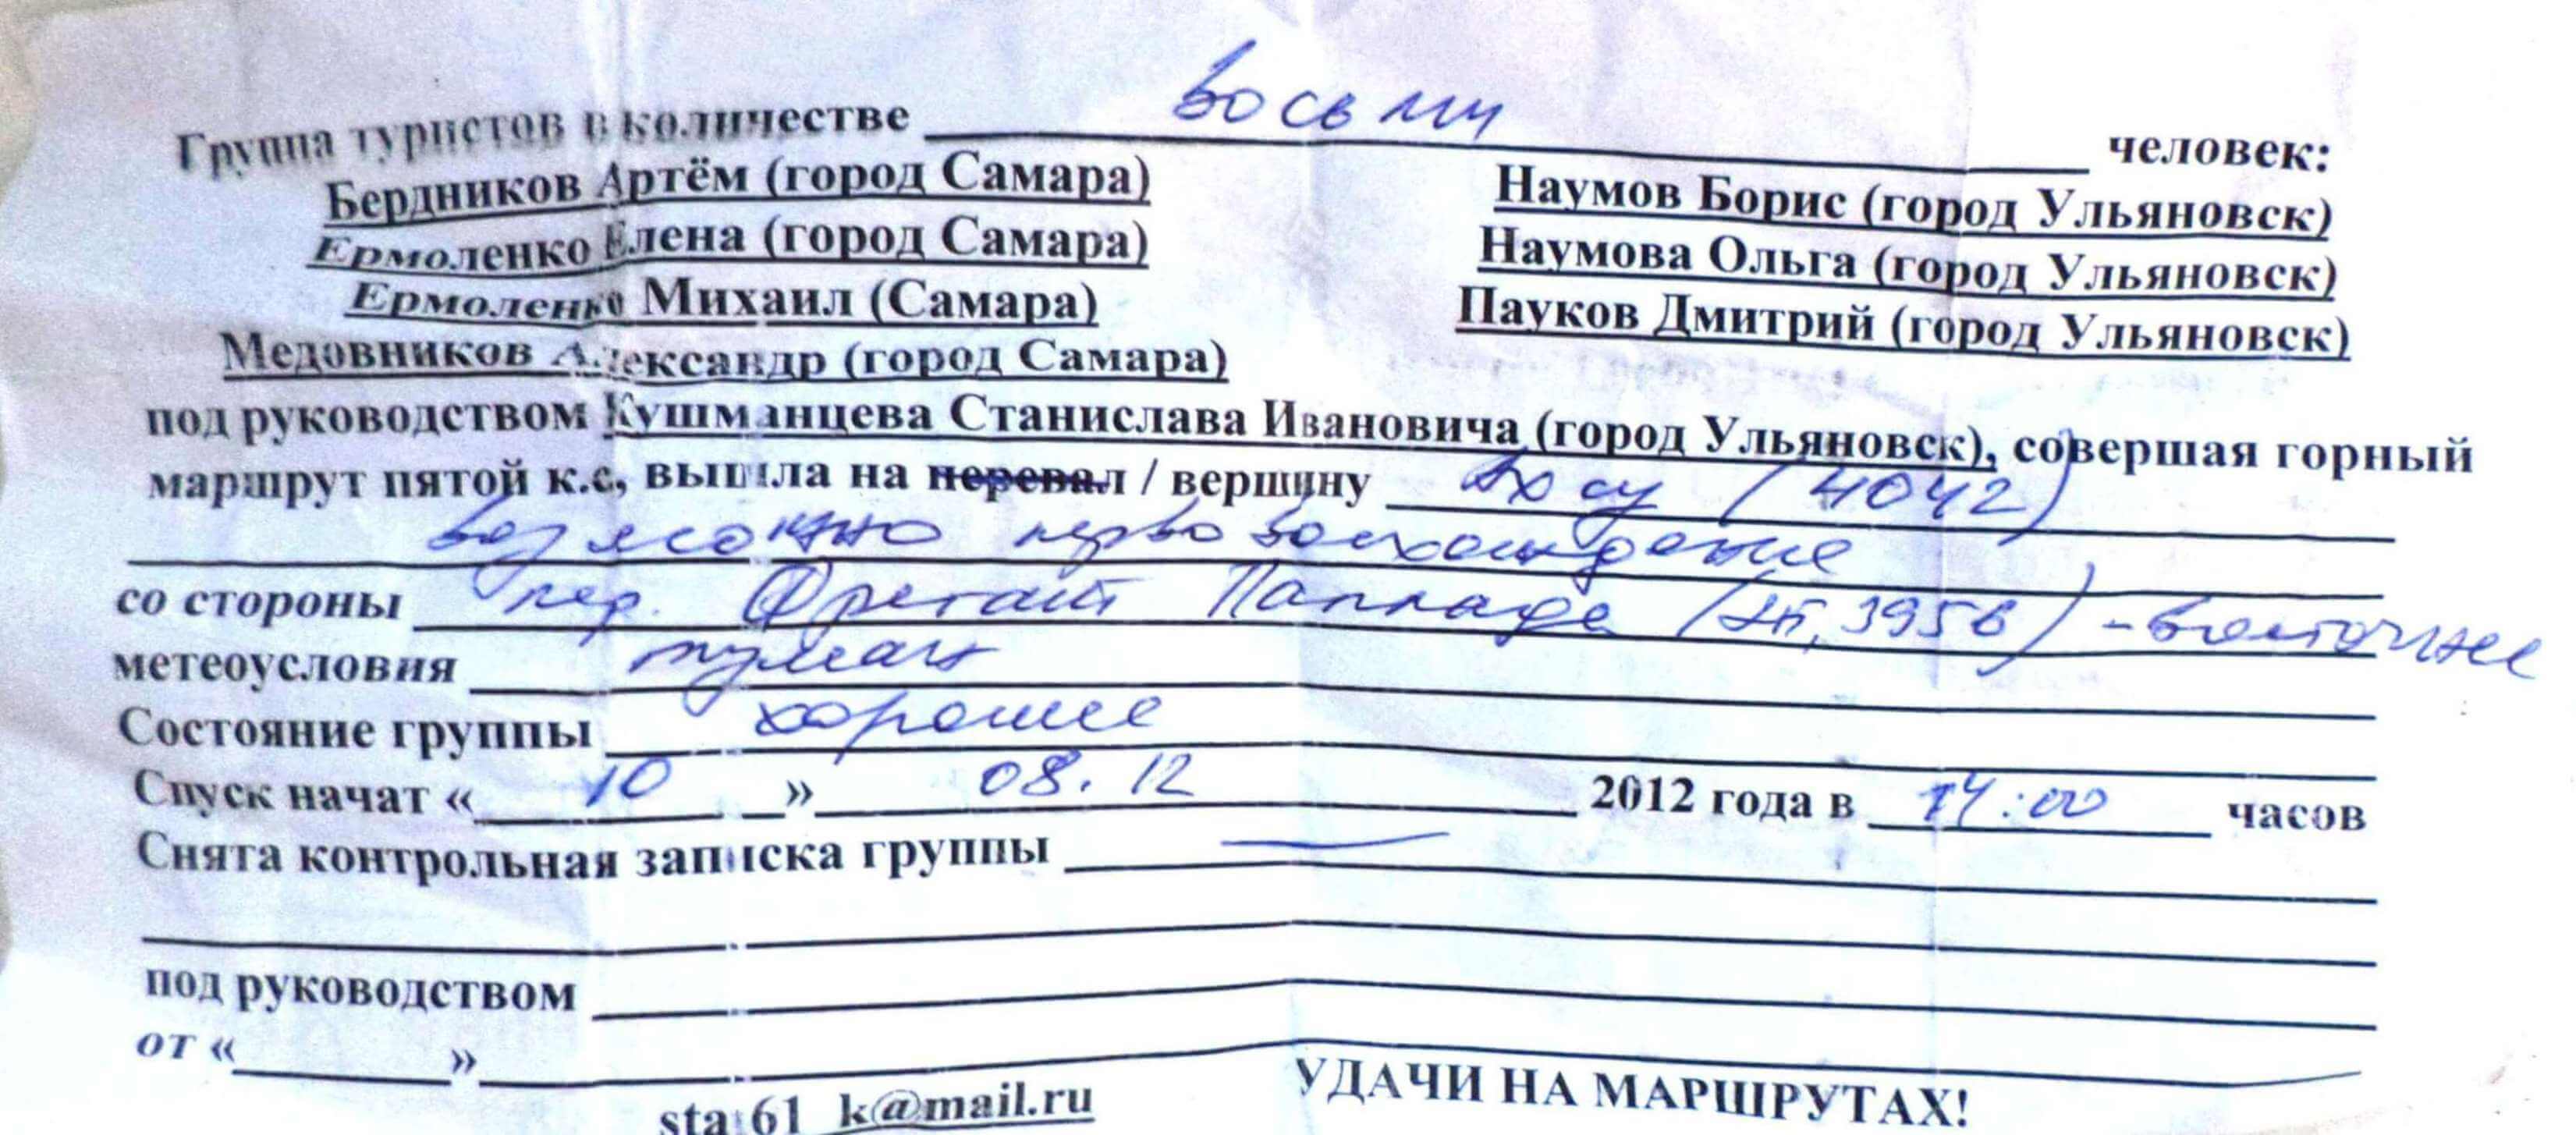 Группа туристов в количестве восьми человек:
Бердников Артём (город Самара) Наумов Борис (город Ульяновск)
Ермоленко Елена (город Самара) Наумова Ольга (город Ульяновск)
Ермоленко Михаил (Самара) Пауков Дмитрий (город Ульяновск)
Медовников Александр (город Самара)
под руководством Кушманцева Станислава Ивановича (город Ульяновск), совершая горный
маршрут пятой к.с, вышла на перевал / вершину Аксу (4042)
возможно первовосхождение
со стороны пер. Фрегат Паллада (2Б, 3956) - восточнее
метеоусловия туман
Состояние группы хорошее
Спуск начат « 10 » 08.12 2012 года в 14:00 часов
Снята контрольная записка группы —
под руководством
от « »
УДАЧИ НА МАРШРУТАХ!
k@mail.ru